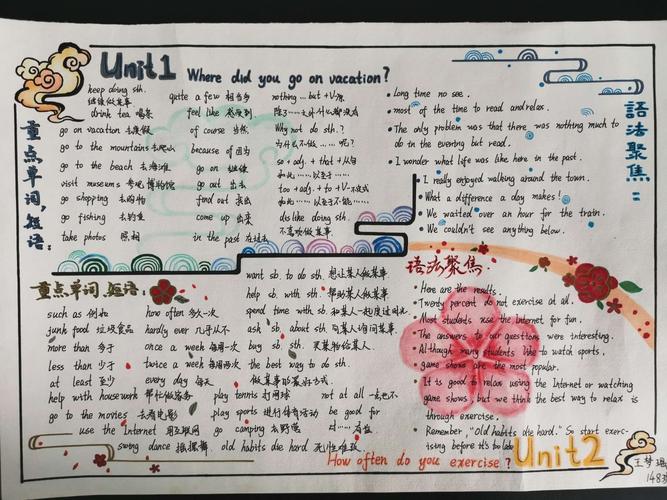 Unit1 Where did you go on vacation?
重点单词,短语:
keep doing sth.
继续做某事
drink tea 喝茶
go on vacation 去度假
go to the mountains 去爬山
go to the beach 去海滩
visit museums 参观博物馆
go shopping 去购物
go fishing 去钓鱼
take photos 照相
quite a few 相当多
feel like 感受到
of course 当然
because of 因为
go on 继续
go out 出去
find out 找出
come up 出来
in the past 在过去
nothing ... but + V-原
除了……之外什么都没有
Why not do sth.?
为什么不做……呢?
so + adj. + that + 从句
如此……以至于……
too + adj. + to + V-不定式
如此……以至于不能……
dislike doing sth.
不喜欢做某事
語法聚焦:
Long time no see.
most of the time to read and relax.
The only problem was that there was nothing much to
do in the evening but read.
I wonder what life was like here in the past.
I really enjoyed walking around the town.
What a difference a day makes!
We waited over an hour for the train.
We couldn't see anything below.
重点单词、短语:
such as 例如
junk food 垃圾食品
more than 多于
less than 少于
at least 至少
help with housework 帮忙做家务
go to the movies 去看电影
use the Internet 用互联网
swing dance 摇摆舞
how often 多久一次
hardly ever 几乎从不
once a week 每周一次
twice a week 每周两次
every day 每天
play tennis 打网球
play sports 进行体育活动
go camping 去野营
old habits die hard 积习难改
want sb. to do sth. 想让某人做某事
help sb. with sth. 帮助某人做某事
spend time with sb. 和某人一起度过时光
ask sb. about sth. 向某人询问某事
buy sb. sth. 买某物给某人
the best way to do sth.
做某事的最好方式
not at all 一点也不
be good for
对……有益
语法聚焦
Here are the results.
Twenty percent do not exercise at all.
Most students use the Internet for fun.
The answers to our questions were interesting.
Although many students like to watch sports,
game shows are the most popular.
It is good to relax using the Internet or watching
game shows but we think the best way to relax is
through exercise.
Remember, "Old habits die hard." So start exerc-
ising before it's too late
How often do you exercise? Unit2
王梦